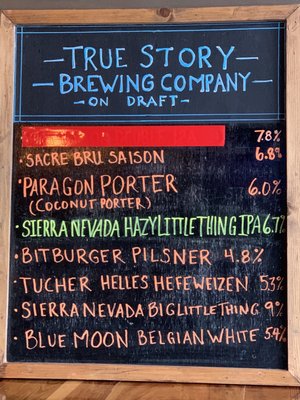 TRUE STORY
BREWING COMPANY
- ON DRAFT -
7.8%
· SACRE BRU SAISON 6.8%
· PARAGON PORTER 6.0%
(COCONUT PORTER)
· SIERRA NEVADA HAZY LITTLE THING IPA 6.7%
· BITBURGER PILSNER 4.8%
· TUCHER HELLES HEFEWEIZEN 5.3%
· SIERRA NEVADA BIG LITTLE THING 9%
· BLUE MOON BELGIAN WHITE 5.4%